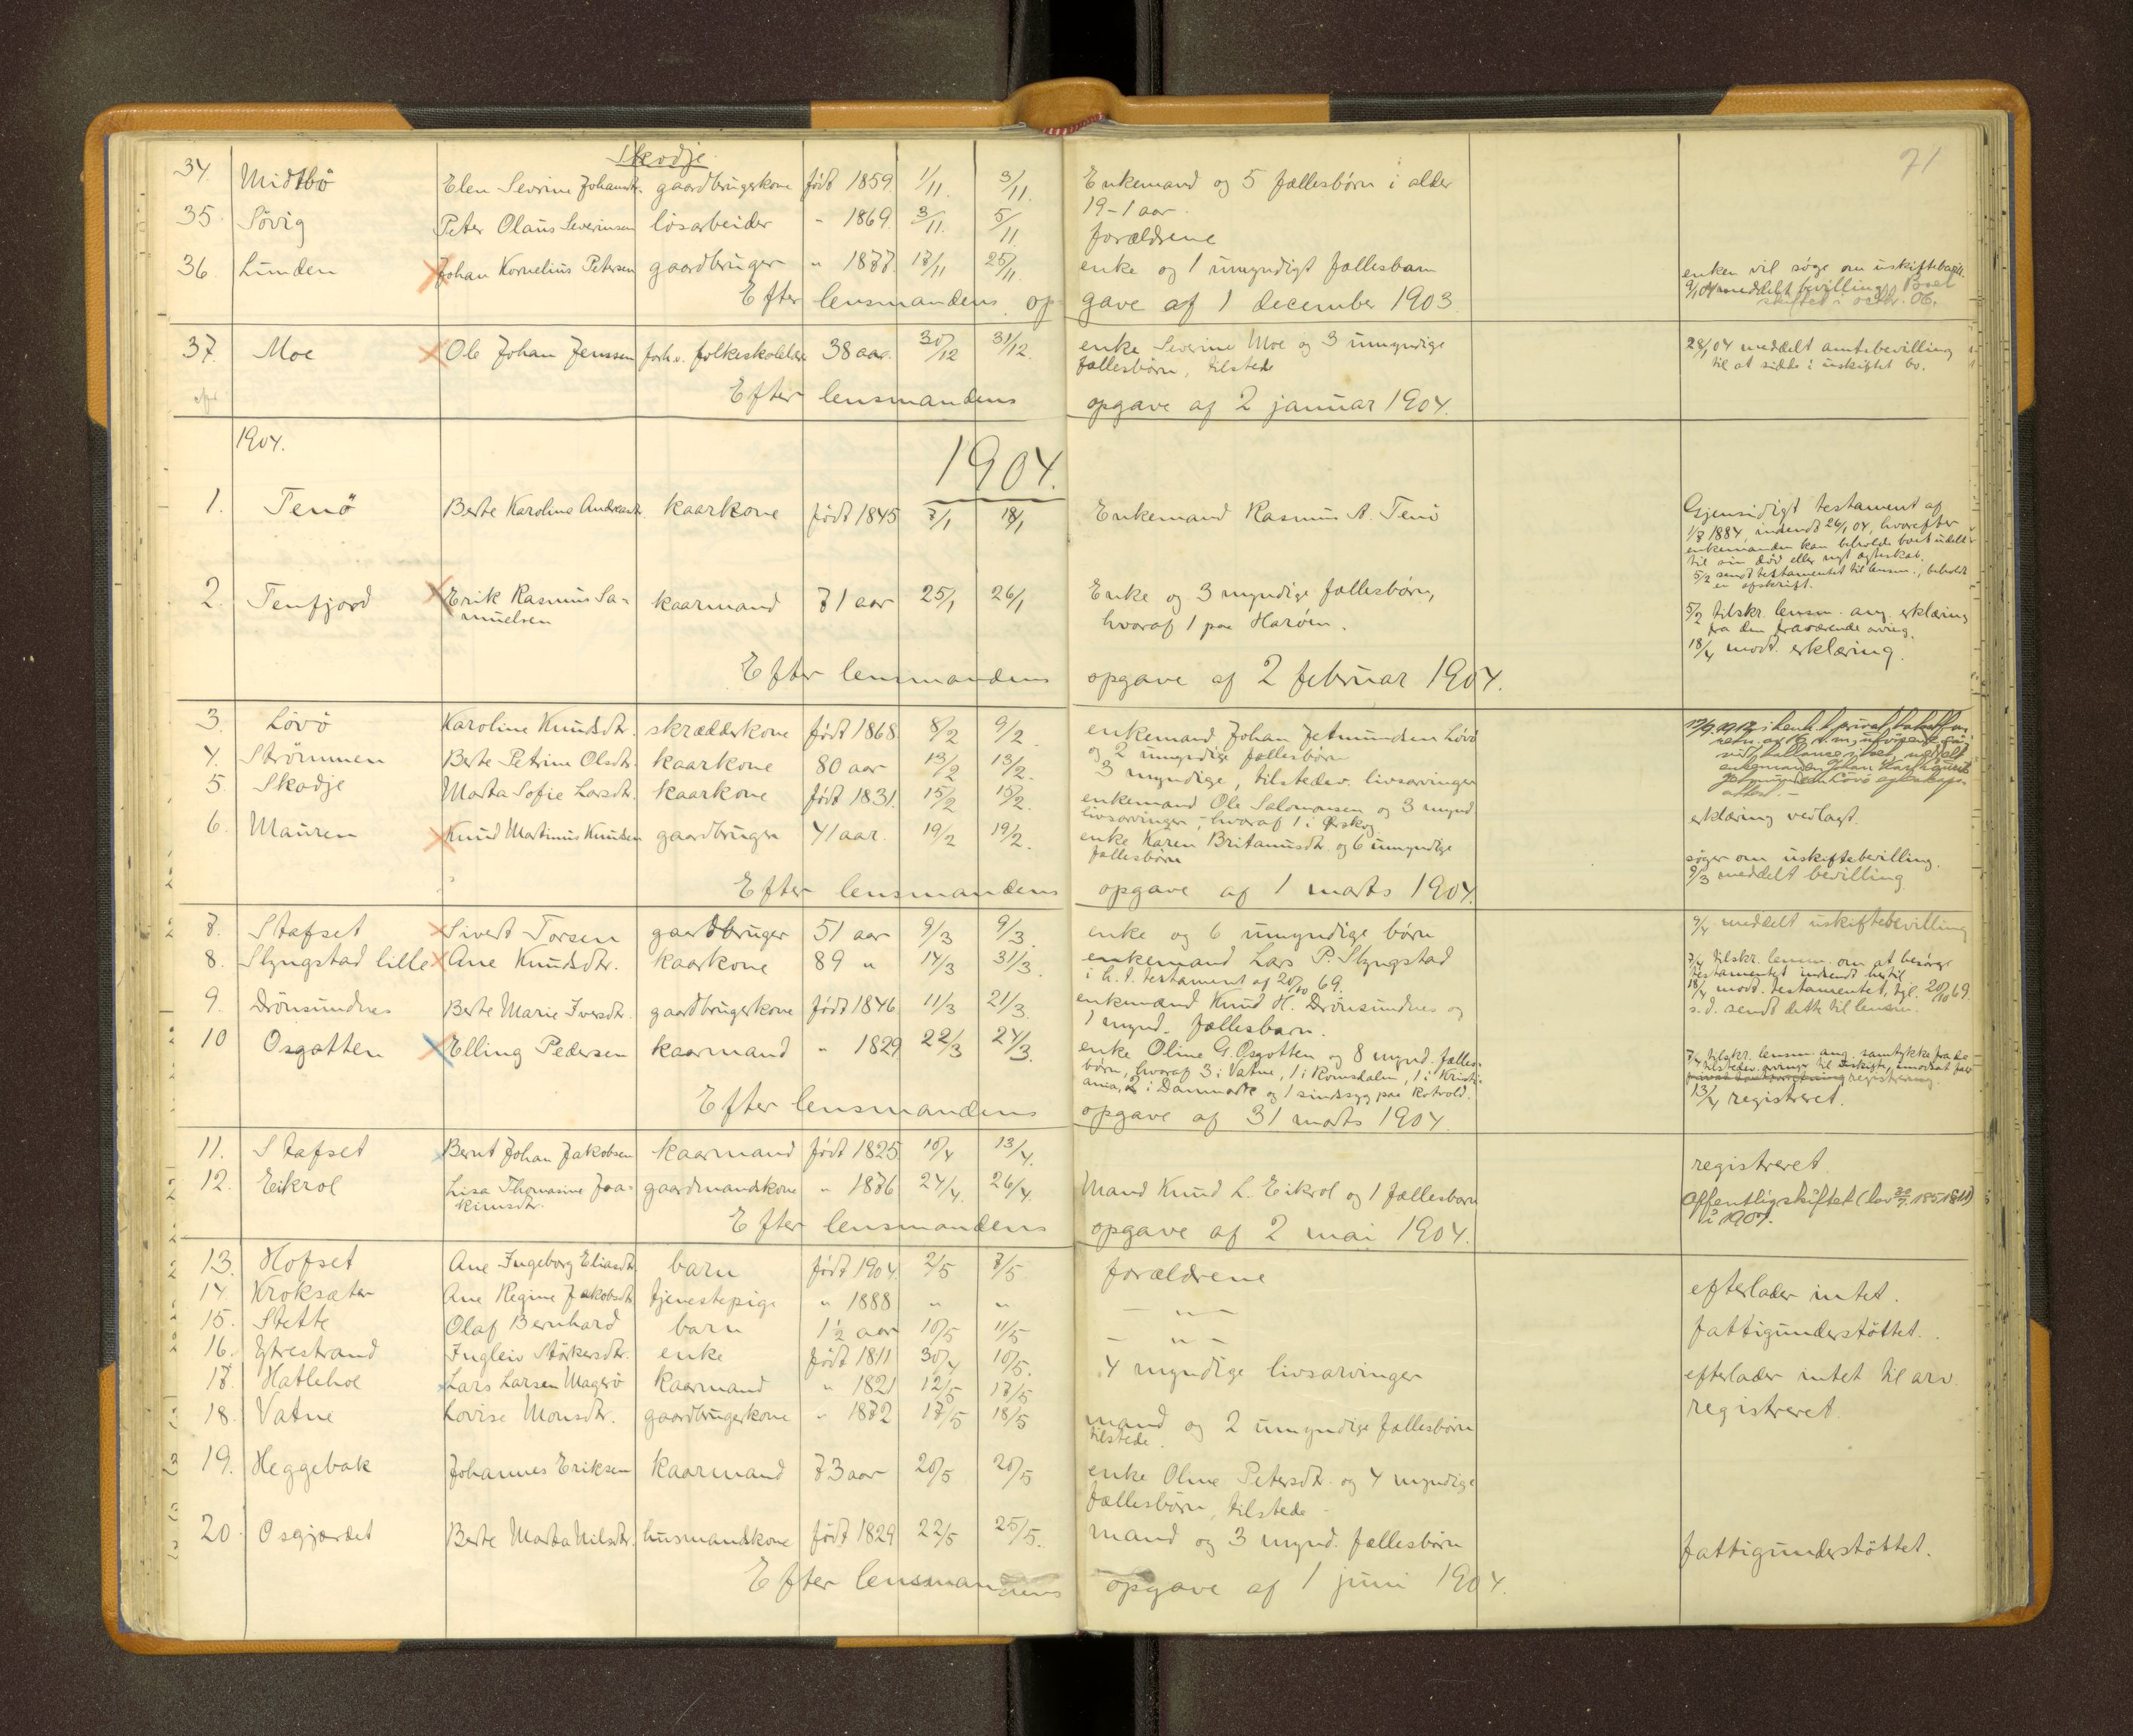 Skodje.
71
34. Midtbö Elen Sevrine Johansdtr. gaardbrugerkone född 1859. 1/11. 3/11. Enkemand og 5 fællesbörn i alder
19-1 aar.
35. Sövig Peter Olaus Severinsen lösarbeider " 1869. 3/11. 5/11 forældrene
36. Lunden Johan Kornelius Petersen gaardbruger " 1877. 17/11 25/11. enke og 1 umyndigt fællesbarn enken vil søge om uskiftebevill.
9/1 04 meddelt bevilling. Boet
skiftet i 06.
Efter lensmandens opgave af 1 december 1903.
37. Moe Ole Johan Jenssen forh.v. folkeskolelær 38 aar. 30/12 31/12. enke Severine Moe og 3 umyndige
fællesbörn, tilstede
28/1 04 meddelt amtsbevilling
til at sidde i uskiftet bo.
Efter lensmandens opgave af 2 januar 1904.
1904.
1904.
1. Tenö Berte Karoline Andreasdtr. kaarkone född 1845 7/1 18/1 Enkemand Rasmus A. Tenö
Gjensidigt testament af
1/7 1884, indsendt 26/1 04, hvorefter
enkemanden kan beholde boet udelt
til sin död eller nyt ægteskab.
5/2 sendt testamentet til lensm., beholdt
en afskrift.
2. Tenfjord Erik Rasmus Sa-
muelsen kaarmand 71 aar 25/1 26/1 Enke og 3 myndige fællesbörn,
hvoraf 1 paa Haröen.
5/2 tilskr. lensm. ang. erklæring
fra den fraværende arving.
18/4 modt. erklæring.
Efter lensmandens opgave af 2 februar 1904.
3. Lövö Karoline Knudsdtr. skrædderkone född 1868. 8/2 9/2 enkemand Johan Jetmundsen Lövö
og 2 umyndige fællesbörn
4. Strömmen Berte Petrine Olsdtr. kaarkone 80 aar 13/2 13/2. 3 myndige, tilstedev. livsarvinger
5. Skodje Marta Sofie Larsdtr. kaarkone född 1831. 15/2 15/2. enkemand Ole Salomonsen og 3 mynd.
livsarvinger, hvoraf 1 i Ørskog.
erklæring vedlagt.
6. Mauren Knud Martinus Knudsen gaardbruger 41 aar. 19/2 19/2. enke Karen Britanusdtr. og 6 umyndige
fællesbörn
søger om uskiftebevilling.
9/3 meddelt bevilling
Efter lensmandens opgave af 1 marts 1904.
7. Stafset Sivert Torsen gaardbruger 51 aar 9/3 9/3. enke og 6 umyndige börn 9/4 meddelt uskiftebevilling
8. Slyngstad lille Ane Knudsdtr. kaarkone 89 " 14/3 31/3. enkemand Lars P. Slyngstad
i h. t. testament af 20/10 69.
7/4 tilskr. lensm. om at besörge
testamentet indsendt hertil
18/4 modt. testamentet, tgl. 20/10 69.
s.d. sendt dette til lensm.
9. Drönsundnes Berte Marie Iversdtr. gaardbrugerkone född 1846. 11/3 21/3. enkemand Knud H. Drönsundnes og
1 mynd. fællesbarn.
10 Osgotten Elling Pedersen kaarmand " 1829 22/3 24/3. enke Oline G. Osgotten og 8 mynd. fælles-
börn, hvoraf 3 i Vatne, 1 i Romsdalen, 1 i Kristi-
ania, 2 i Danmark og 1 sindssyg paa Rotvold.
7/4 tilskr. lensm. ang. samtykke fra de
tilstedev. arvinger til uskifte, imodsat fald
registrering.
13/4 registreret.
Efter lensmandens opgave af 31 marts 1904.
11. Stafset Bernt Johan Jakobsen kaarmand född 1825 10/4 13/4. registreret.
12. Eikrol Lisa Thomasine Joa-
kimsdtr. gaardmandskone " 1876 24/4. 26/4. Mand Knud L. Eikrol og 1 fællesbarn
Offentlig skiftet
i 1907.
Efter lensmandens opgave af 2 mai 1904.
13. Hofset Ane Ingeborg Eliasdtr. barn född 1904. 2/5 7/5 forældrene efterlader intet.
14. Kroksæter Ane Regine Jakobsdtr. tjenestepige " 1888 " " — " — fattigunderstöttet.
15. Stette Olaf Bernhard barn 1 1/2 aar 10/5 11/5 — " —
16. Ytrestrand Ingleiv Störkersdtr. enke född 1811 30/4 10/5. 4 myndige livsarvinger efterlader intet til arv.
17. Hatlehol Lars Larsen Magerö kaarmand " 1821 12/5 17/5 registreret.
18. Vatne Lovise Monsdtr. gaardbrugerkone " 1872 17/5 18/5 mand og 2 umyndige fællesbörn
tilstede.
19. Heggebak Johannes Eriksen kaarmand 73 aar 20/5 20/5 enke Oline Petersdtr. og 4 myndige
fællesbörn, tilstede
20. Osgjærdet Berte Marta Nilsdtr. husmandskone född 1829 22/5 25/5. mand og 3 mynd. fællesbörn fattigunderstöttet.
Efter lensmandens opgave af 1 juni 1904.